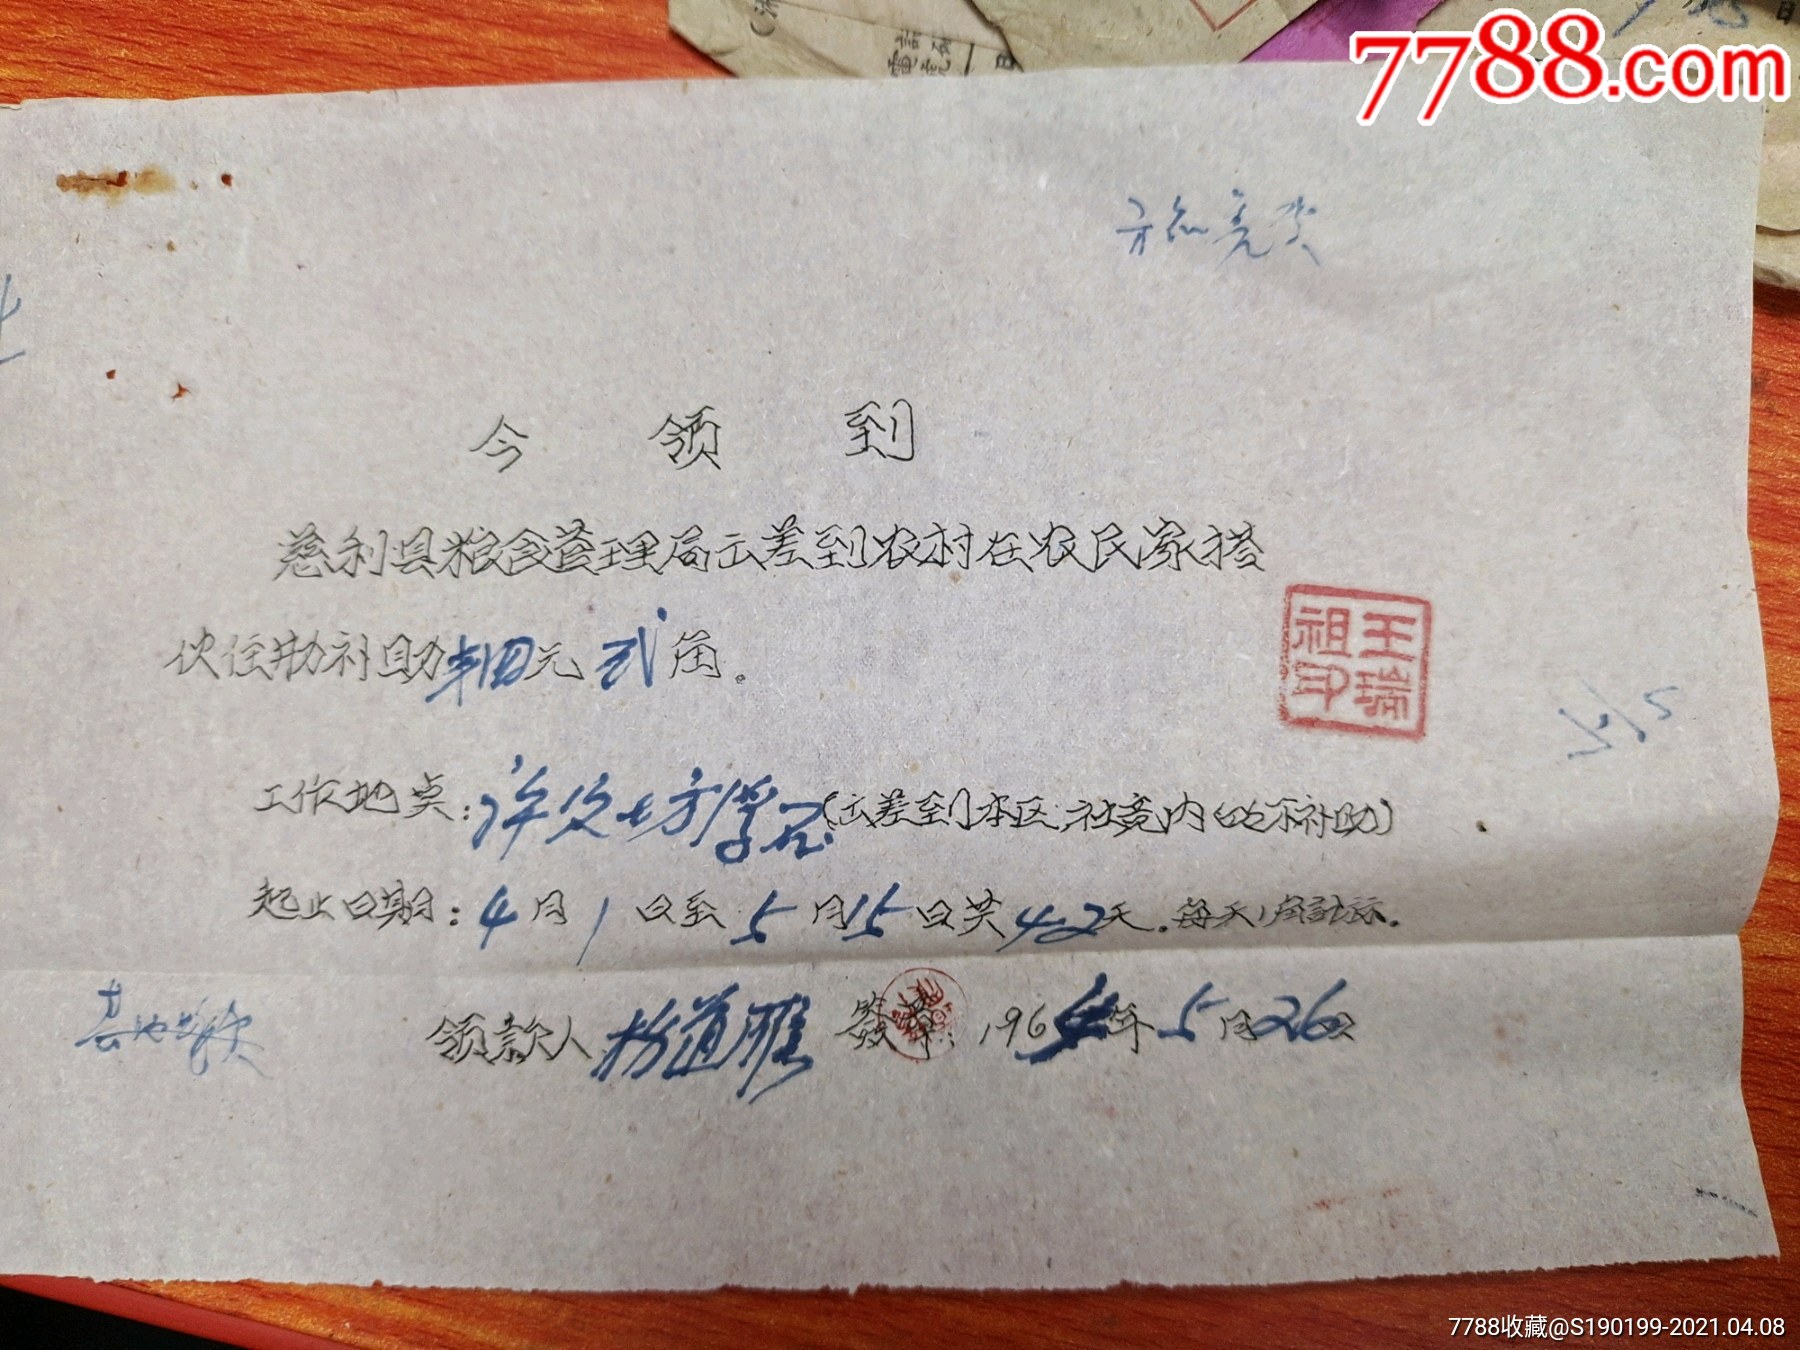 7788.com
今领到
慈利县粮食管理局出差到农村在农民家搭
伙住勤补助肆元贰角。
王瑞祖印
工作地点：(出差到本区、社竟内的不补助)
起止日期：4月1日至5月15日共42天。每天1角計示.
领款人 道雁 1964年5月26日
7788收藏@S190199-2021.04.08